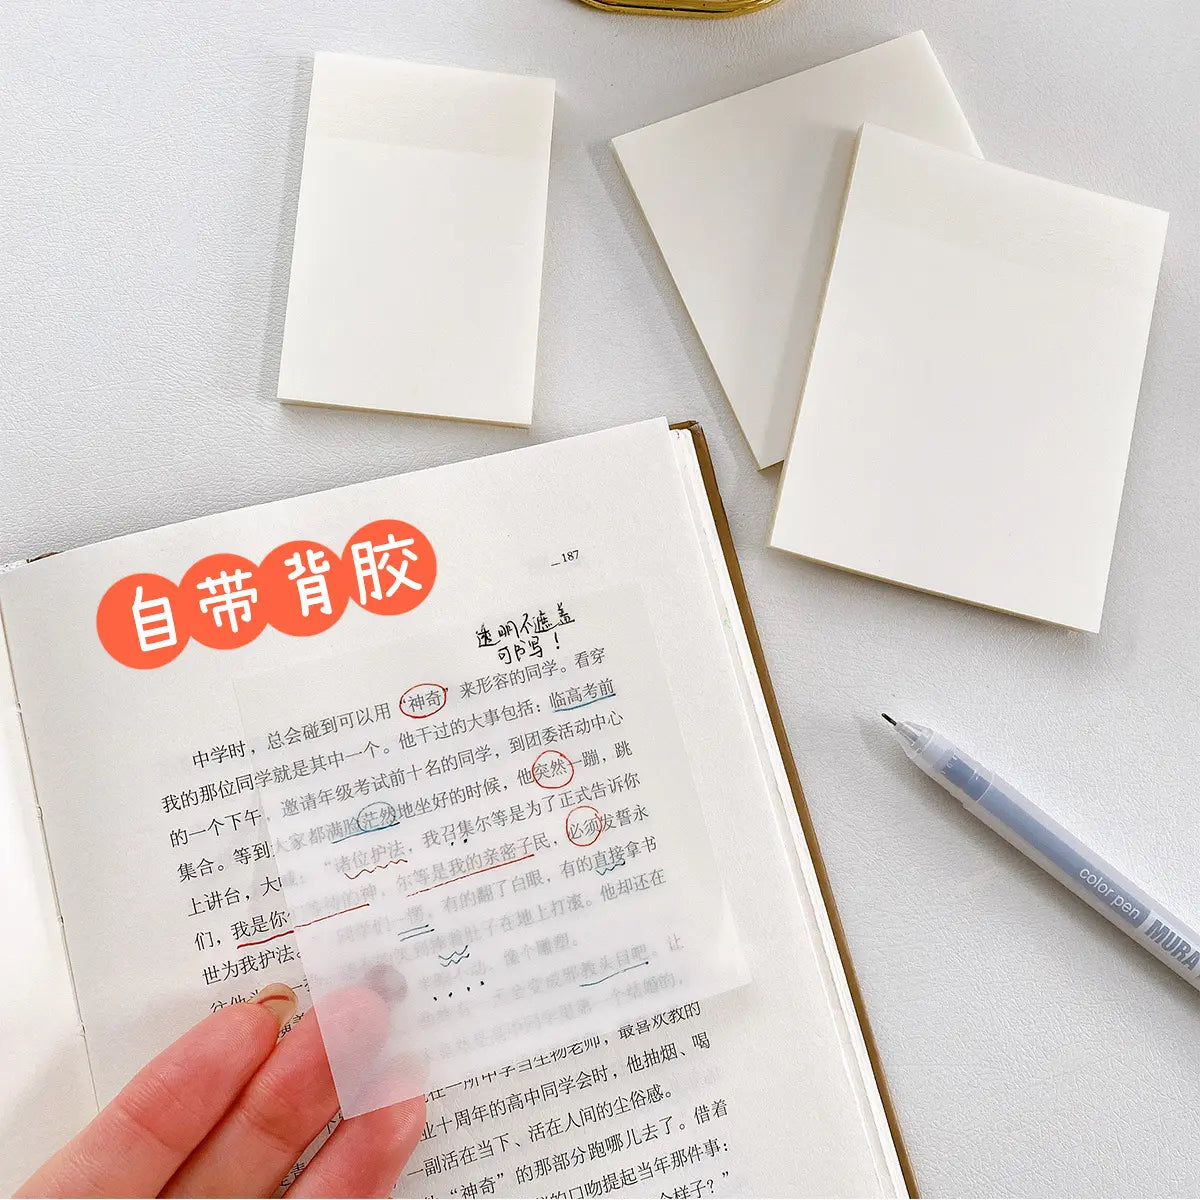 自带背胶
187
透明不遮盖
可书写！
中学时，总会碰到可以用“神奇”来形容的同学。看穿
我的那位同学就是其中一个。他干过的大事包括：临高考前
的一个下午，邀请年级考试前十名的同学，到团委活动中心
集合。等到大家都满脸茫然地坐好的时候，他突然一蹦，跳
上讲台，大喊：“诸位护法，我召集尔等是为了正式告诉你
们，我是你们等待的神，尔等是我的亲密子民，必须发誓永
世为我护法。同学们一愣，有的翻了白眼，有的直接拿书
肚子在地上打滚。他却还在
像个雕塑。
教头目吧。让
第一个结婚的，
在一所中学当生物老师，最喜欢教的
业十周年的高中同学会时，他抽烟、喝
一副活在当下、活在人间的尘俗感。
“神奇”的那部分跑哪儿去了。借着
的口吻提起当年那件事：
个样子？”
color pen MURA